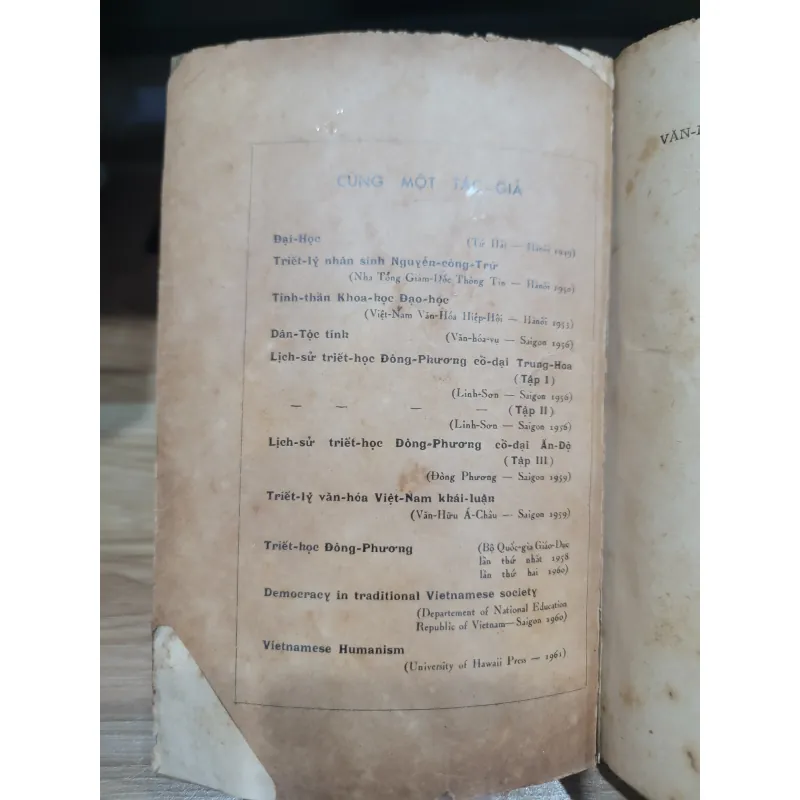 CÙNG MỘT TÁC-GIẢ
Đại-Học (Tứ Hải — Hànôi 1949)
Triết-lý nhân sinh Nguyễn-công-Trứ
(Nha Tổng Giám-Đốc Thông Tin — Hànôi 1950)
Tinh-thần Khoa-học Đạo-học
(Việt-Nam Văn-Hóa Hiệp-Hội — Hànôi 1953)
Dân-Tộc tính (Văn-hóa-vụ — Saigon 1956)
Lịch-sử triết-học Đông-Phương cổ-đại Trung-Hoa
(Tập I)
(Linh-Sơn — Saigon 1956)
— — — — (Tập II)
(Linh-Sơn — Saigon 1956)
Lịch-sử triết-học Đông-Phương cổ-đại Ấn-Độ
(Tập III)
(Đông Phương — Saigon 1959)
Triết-lý văn-hóa Việt-Nam khái-luận
(Văn-Hữu Á-Châu — Saigon 1959)
Triết-học Đông-Phương (Bộ Quốc-gia Giáo-Dục
lần thứ nhất 1958
lần thứ hai 1960)
Democracy in traditional Vietnamese society
(Departement of National Education
Republic of Vietnam—Saigon 1960)
Vietnamese Humanism
(University of Hawaii Press — 1961)